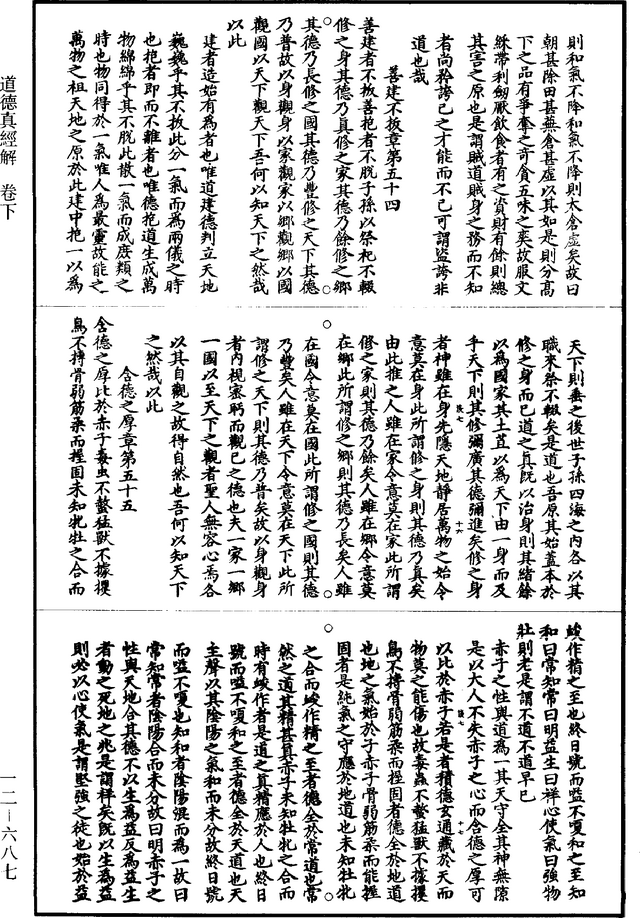 則和氣不降和氣不降則太倉虛矣故曰
朝甚除田甚蕪倉甚虛以其如是則分高
下之品有爭奪之奇食五味之矣故服文
綵帶利劒厭飲食者有之資財有餘則總
其害之原也是謂賊道賊身之務而不知
者尚矜誇已之才能而不已可謂盜誇非
道也哉
善建不拔章第五十四
善建者不拔善抱者不脫子孫以祭祀不輟
修之身其德乃真修之家其德乃餘修之鄉
其德乃長修之國其德乃豐修之天下其德
乃普故以身觀身以家觀家以鄉觀鄉以國
觀國以天下觀天下吾何以知天下之然哉
以此
建者造始有為者也唯道建德判立天地
巍巍乎其不拔此分一氣而為兩儀之時
也抱者即而不離者也唯德抱道生成萬
物綿綿乎其不脫此散一氣而成庶類之
時也物同得於一氣唯人為最靈故能之
萬物之祖天地之原於此建中抱一以為
天下則垂之後世子孫四海之內各以其
職來祭不輟矣是道也吾原其始蓋本於
修之身而已道之真既以治身則其緒餘
以為國家其土苴以為天下由一身而及
乎天下則其修彌廣其德彌進矣修之身
者神雖在身先隱天地靜居萬物之始令
意莫在身此所謂修之身則其德乃真矣
由此推之人雖在家令意莫在家此所謂
修之家則其德乃餘矣人雖在鄉令意莫
在鄉此所謂修之鄉則其德乃長矣人雖
在國令意莫在國此所謂修之國則其德
乃豐矣人雖在天下令意莫在天下此所
謂修之天下則其德乃普矣故以身觀身
者內視審躬而觀已之德也夫一家一鄉
一國以至天下之觀者聖人無容心焉各
以其自觀之故得自然也吾何以知天下
之然哉以此
含德之厚章第五十五
含德之厚比於赤子毒虫不螫猛獸不據攫
鳥不搏骨弱筋柔而握固未知牝牡之合而
峻作精之至也終日號而嗌不嗄和之至知
和曰常知常曰明益生曰祥心使氣曰強物
壯則老是謂不道不道早已
赤子之性與道為一其天守全其神無隙
是以大人不失赤子之心而含德之厚可
以比於赤子若是者積德玄通藏於天而
物莫之能傷也故毒蟲不螫猛獸不據攫
鳥不搏骨弱筋柔而握固者德全於地道
也地之氣始於子赤子骨弱筋柔而能握
固者是純氣之守應於地道也未知牝牡
之合而峻作精之至者德全於常道也常
然之道其精甚真赤子未知牡牝之合而
時有峻作者是道之真精應於人也終日
號而嗌不嗄和之至者德全於天道也天
主聲以其陰陽之氣和而未分故終日號
而嗌不嗄也知和者陰陽混而為一故曰
常知常者陰陽合而未分故曰明赤子之
性與天地合其德不以生為益反為益生
者動之死地之兆是謂祥矣既以生為益
則必以心使氣是謂堅強之徒也始於益
道德真經解　卷下
一二－六八七